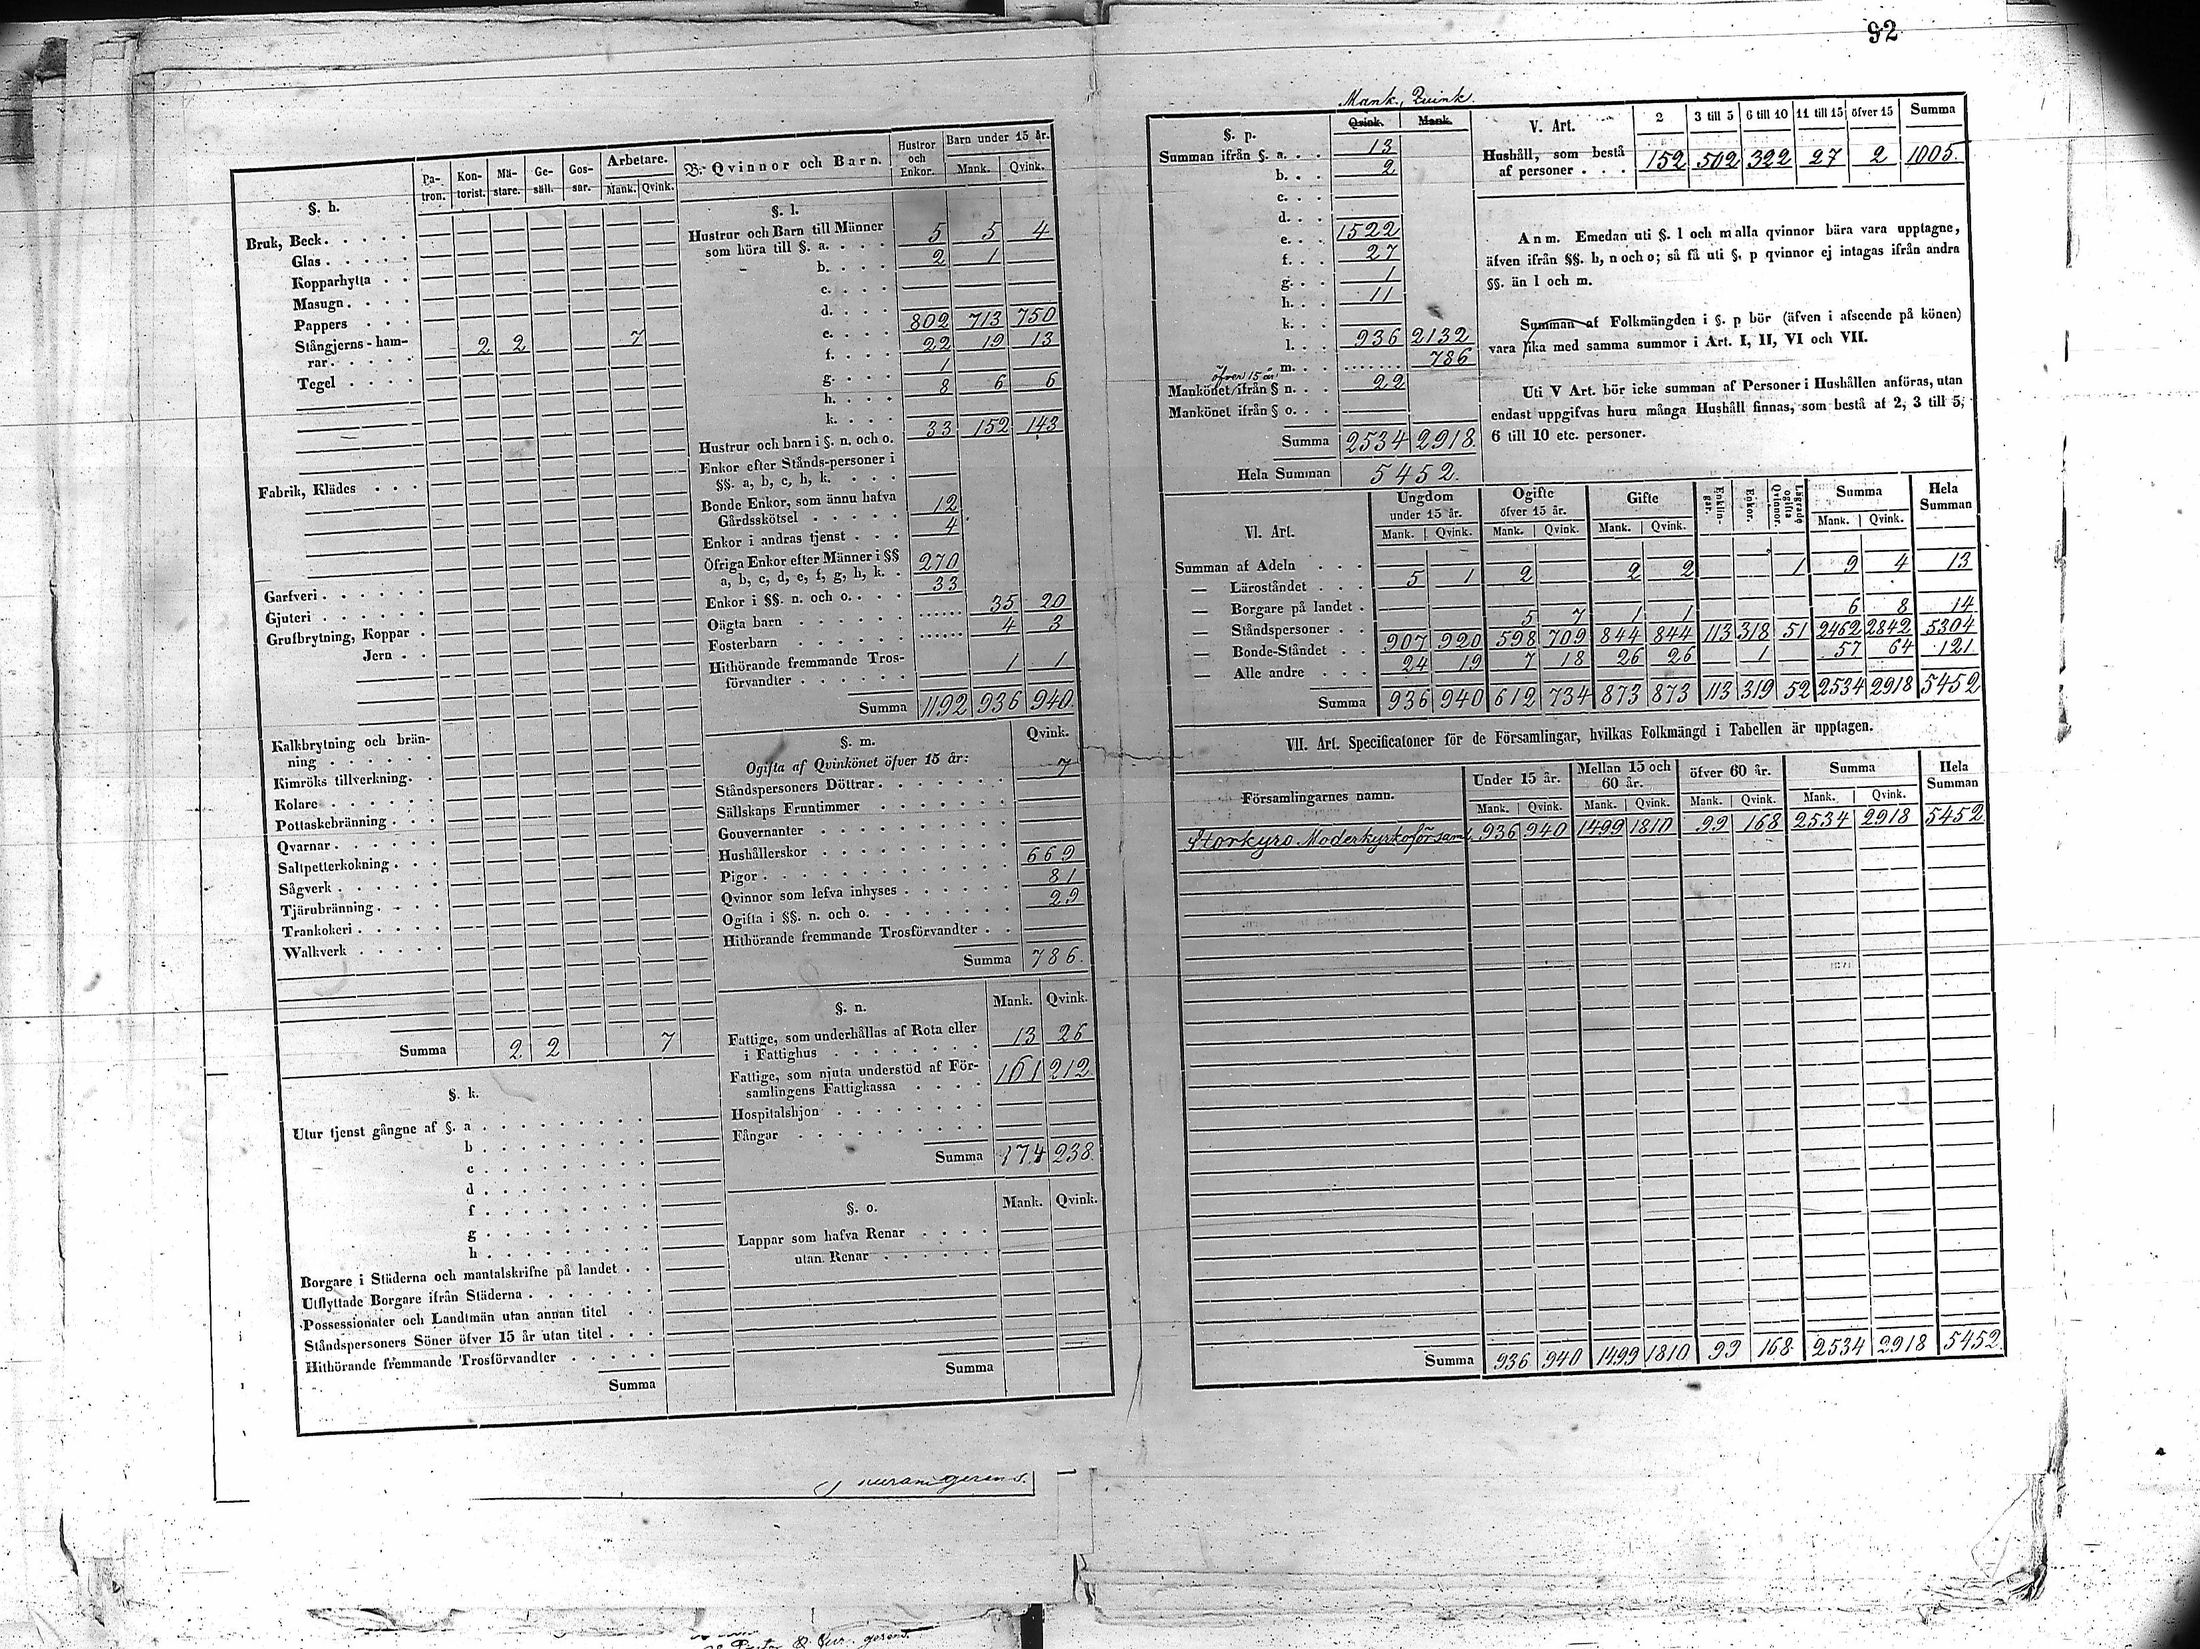 92
§. h. Patron. Kontorist. Mästare. Gesäll. Gossar. Arbetare. Mank. Qvink.
Bruk, Beck
Glas
Kopparhytta
Masugn
Pappers
Stångjerns-hamrar 2 2 7
Tegel
Fabrik, Klädes
Garfveri
Gjuteri
Grufbrytning, Koppar
Jern
Kalkbrytning och bränning
Kimröks tillverkning
Kolare
Pottaskebränning
Qvarnar
Saltpetterkokning
Sågverk
Tjärubränning
Trankokeri
Walkverk
Summa 2 2 7
§. k.
Utur tjenst gångne af §. a
b
c
d
f
g
h
Borgare i Städerna och mantalskrifne på landet
Utflyttade Borgare ifrån Städerna
Possessionater och Landtmän utan annan titel
Ståndspersoners Söner öfver 15 år utan titel
Hithörande fremmande Trosförvandter
Summa
B. Qvinnor och Barn. Hustror och Enkor. Barn under 15 år. Mank. Qvink.
§. l.
Hustrur och Barn till Männer
som höra till §. a. 5 5 4
b. 2 1
c.
d.
e. 802 713 750
f. 22 19 13
g. 1
h. 8 6 6
k.
Hustrur och barn i §. n. och o. 33 152 143
Enkor efter Stånds-personer i
§§. a, b, c, h, k.
Bonde Enkor, som ännu hafva
Gårdsskötsel 12
Enkor i andras tjenst 4
Öfriga Enkor efter Männer i §§
a, b, c, d, e, f, g, h, k. 270
Enkor i §§. n. och o. 33
Oägta barn 35 20
Fosterbarn 4 3
Hithörande fremmande Trosförvandter 1 1
Summa 1192 936 940.
§. m. Qvink.
Ogifta af Qvinkönet öfver 15 år:
Ståndspersoners Döttrar 7
Sällskaps Fruntimmer
Gouvernanter
Hushållerskor
Pigor 669
Qvinnor som lefva inhyses 81
Ogifta i §§. n. och o. 29
Hithörande fremmande Trosförvandter
Summa 786.
§. n. Mank. Qvink.
Fattige, som underhållas af Rota eller
i Fattighus 13 26
Fattige, som njuta understöd af Församlingens Fattigkassa 161 212
Hospitalshjon
Fångar
Summa 174 238.
§. o. Mank. Qvink.
Lappar som hafva Renar
utan Renar
Summa
Mank. Qvink.
§. p. Qvink. Mank.
Summan ifrån §. a. 13
b. 2
c.
d.
e. 1522
f. 27
g. 1
h. 11
k.
l. 936 2132
m. 786
öfver 15 år
Mankönet ifrån § n. 22
Mankönet ifrån § o.
Summa 2534 2918.
Hela Summan 5452.
V. Art. 2 3 till 5 6 till 10 11 till 15 öfver 15 Summa
Hushåll, som bestå
af personer 152 502 322 27 2 1005.
Anm. Emedan uti §. l och m alla qvinnor böra vara upptagne,
äfven ifrån §§. h, n och o; så få uti §. p qvinnor ej intagas ifrån andra
§§. än l och m.
Summan af Folkmängden i §. p bör (äfven i afseende på könen)
vara lika med samma summor i Art. I, II, VI och VII.
Uti V Art. bör icke summan af Personer i Hushållen anföras, utan
endast uppgifvas huru många Hushåll finnas, som bestå af 2, 3 till 5,
6 till 10 etc. personer.
VI. Art. Ungdom under 15 år. Ogifte öfver 15 år. Gifte Enklingar. Enkor. Lägrade ogifta Qvinnor. Summa Hela Summan
Mank. Qvink. Mank. Qvink. Mank. Qvink. Mank. Qvink.
Summan af Adeln
— Läroståndet 5 1 2 2 2 1 9 4 13
— Borgare på landet
— Ståndspersoner 5 7 1 1 6 8 14
— Bonde-Ståndet 907 920 598 709 844 844 113 318 51 2462 2842 5304
— Alle andre 24 19 7 18 26 26 1 57 64 121
Summa 936 940 612 734 873 873 113 319 52 2534 2918 5452
VII. Art. Specificatoner för de Församlingar, hvilkas Folkmängd i Tabellen är upptagen.
Församlingarnes namn. Under 15 år. Mellan 15 och 60 år. öfver 60 år. Summa Hela Summan
Mank. Qvink. Mank. Qvink. Mank. Qvink. Mank. Qvink.
Storkyro Moderkyrkoförsaml. 936 940 1499 1810 99 168 2534 2918 5452
Summa 936 940 1499 1810 99 168 2534 2918 5452
gerens.
gerens.